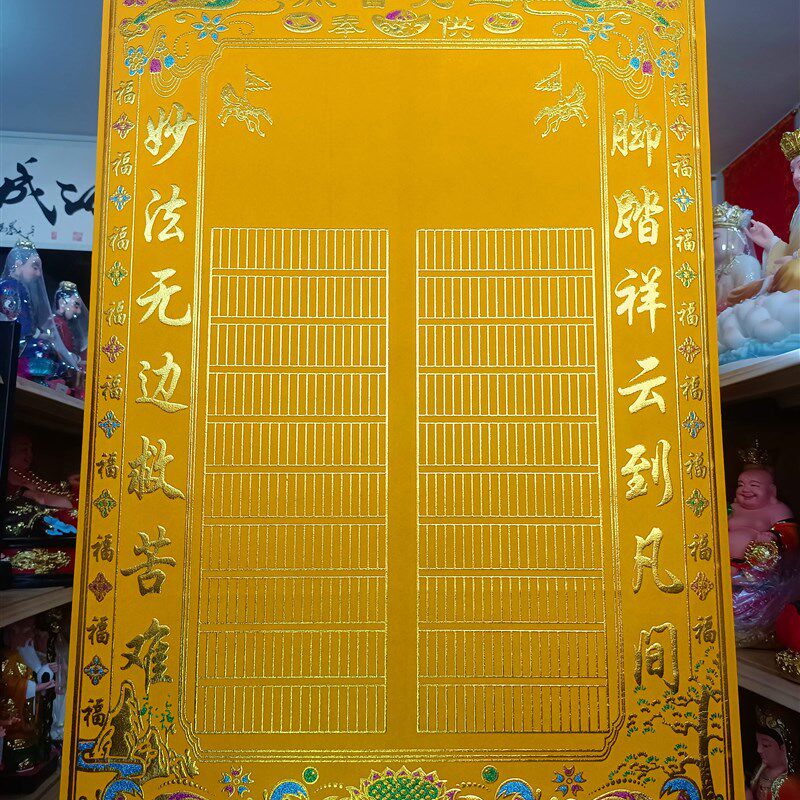 供奉
脚踏祥云到凡间
妙法无边救苦难
福福福福福福福福
福福福福福福福福福
成